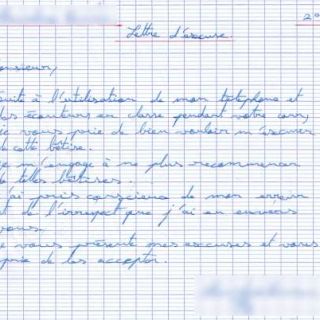 2°
Lettre d'excuse.
onsieur,
uite à l'utilisation de mon téléphone et
des écouteurs en classe pendant votre cours,
je vous prie de bien vouloir m'excuser
de cette bêtise.
je m'engage à ne plus recommencer
de telles bêtises.
j'ai pris conscience de mon erreur
et de l'irrespect que j'ai eu envers
vous.
je vous présente mes excuses et vous
prie de les accepter.